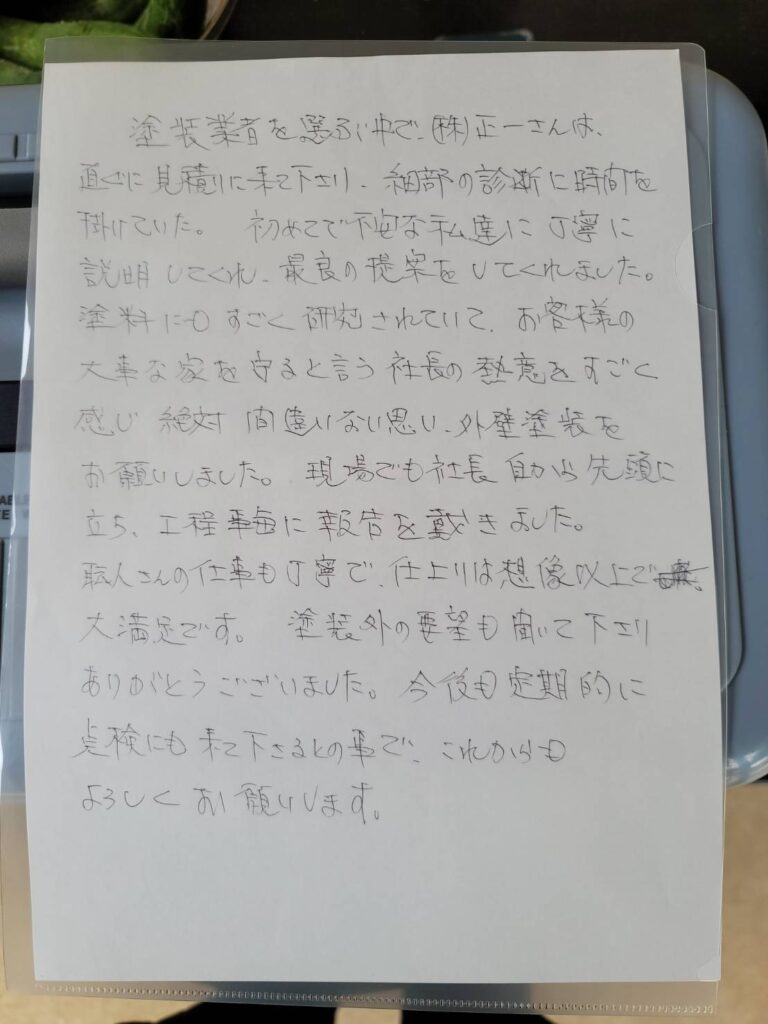 塗装業者を選ぶ中で、㈱正一さんは、
直ぐに見積りに来て下さり、細部の診断に時間を
掛けていた。 初めてで不安な私達に丁寧に
説明してくれ、最良の提案をしてくれました。
塗料にもすごく研究されていて、お客様の
大事な家を守ると言う社長の熱意をすごく
感じ 絶対間違いない思い、外壁塗装を
お願いしました。 現場でも社長自から先頭に
立ち、工程事毎に報告を戴きました。
職人さんの仕事も丁寧で、仕上りは想像以上で
大満足です。 塗装外の要望も聞いて下さり
ありがとうございました。今後も定期的に
点検にも来て下さるとの事で、これからも
よろしくお願いします。